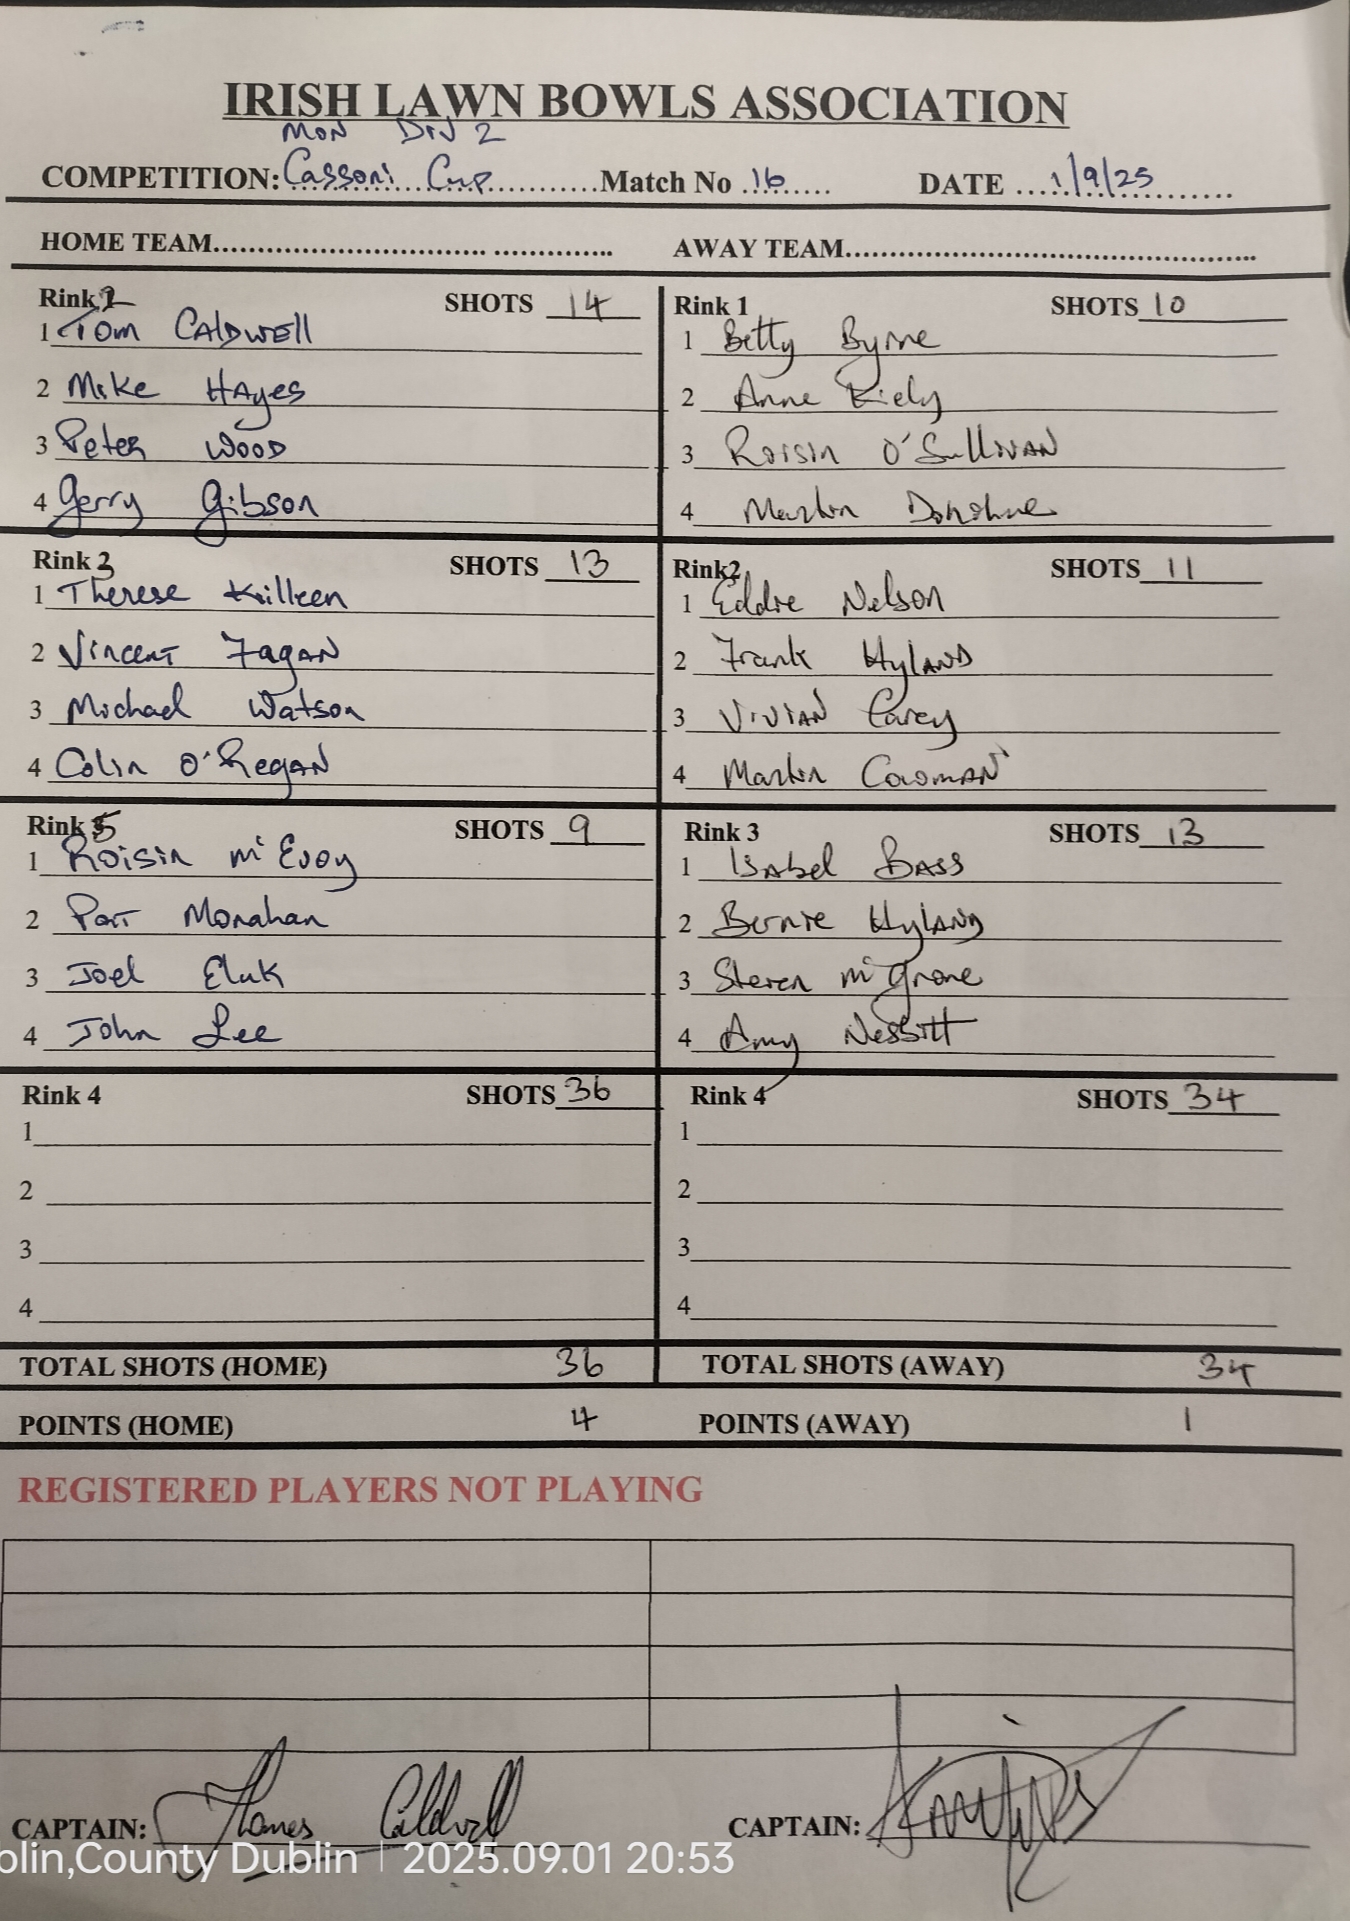 IRISH LAWN BOWLS ASSOCIATION
MON DIV 2
COMPETITION: Cassoni Cup Match No 16 DATE 1/9/25
HOME TEAM AWAY TEAM
Rink 2 SHOTS 14
1 Tom CALDWELL
2 Mike HAyes
3 Peter WOOD
4 Gerry Gibson
Rink 1 SHOTS 10
1 Betty Byrne
2 Anne Kiely
3 Roisin O'SullIVAN
4 Martin Donohue
Rink 3 SHOTS 13
1 Therese Killeen
2 Vincent FagAN
3 Michael Watson
4 Colin O'RegAN
Rink2 SHOTS 11
1 Eddie Nelson
2 Frank HylAND
3 VIVIAN Carey
4 Martin CowmAN
Rink 5 SHOTS 9
1 Roisin Mc Evoy
2 Pat Monahan
3 Joel Eluk
4 John Lee
Rink 3 SHOTS 13
1 ISAbel BASS
2 Bernie HyLAND
3 Steven Mc Grane
4 Amy Nesbitt
Rink 4 SHOTS 36
1
2
3
4
Rink 4 SHOTS 34
1
2
3
4
TOTAL SHOTS (HOME) 36 TOTAL SHOTS (AWAY) 34
POINTS (HOME) 4 POINTS (AWAY) 1
REGISTERED PLAYERS NOT PLAYING
CAPTAIN: Thomas Caldwell CAPTAIN:
blin,County Dublin | 2025.09.01 20:53